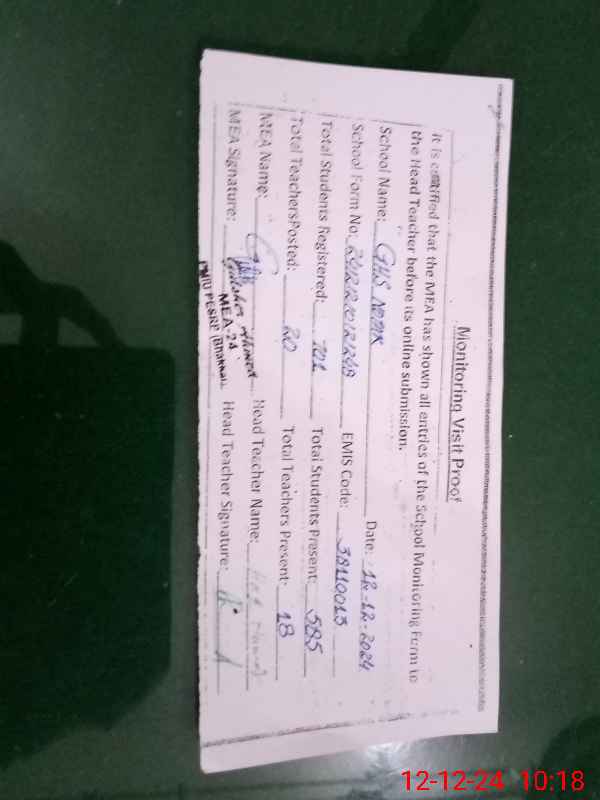 Monitoring Visit Proof
It is certified that the MEA has shown all entries of the School Monitoring Form to
the Head Teacher before its online submission.
Date: 12-12-2024
School Name: GHS NOTAK
School Form No: EMIS Code: 38110013
Total Students Registered: 702 Total Students Present: 585
Total TeachersPosted: 20 Total Teachers Present: 18
MEA Name: Ahmed Head Teacher Name:
MEA Signature: Head Teacher Signature:
MEA-24
PMIU PESRP (Bhakkar)
12-12-24 10:18